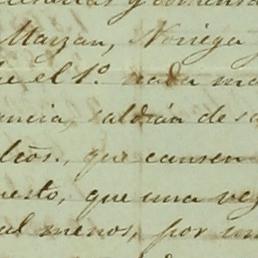 Marzan, Noriega
e el 1º. nada ma
encia, saldrán de sa
que causen
uesto, que una vez
al menos, por un